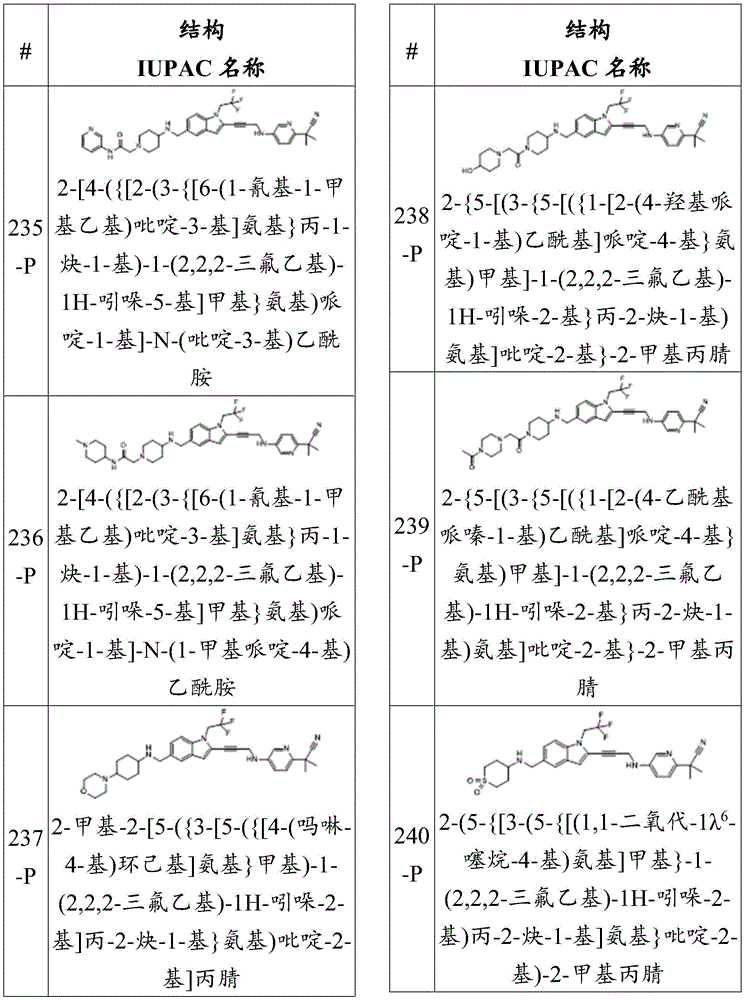 #
结构
IUPAC 名称
235
-P
2-[4-({[2-(3-{[6-(1-氰基-1-甲
基乙基)吡啶-3-基]氨基}丙-1-
炔-1-基)-1-(2,2,2-三氟乙基)-
1H-吲哚-5-基]甲基}氨基)哌
啶-1-基]-N-(吡啶-3-基)乙酰
胺
236
-P
2-[4-({[2-(3-{[6-(1-氰基-1-甲
基乙基)吡啶-3-基]氨基}丙-1-
炔-1-基)-1-(2,2,2-三氟乙基)-
1H-吲哚-5-基]甲基}氨基)哌
啶-1-基]-N-(1-甲基哌啶-4-基)
乙酰胺
237
-P
2-甲基-2-[5-({3-[5-({[4-(吗啉-
4-基)环己基]氨基}甲基)-1-
(2,2,2-三氟乙基)-1H-吲哚-2-
基]丙-2-炔-1-基}氨基)吡啶-2-
基]丙腈
#
结构
IUPAC 名称
238
-P
2-{5-[(3-{5-[({1-[2-(4-羟基哌
啶-1-基)乙酰基]哌啶-4-基}氨
基)甲基]-1-(2,2,2-三氟乙基)-
1H-吲哚-2-基}丙-2-炔-1-基)
氨基]吡啶-2-基}-2-甲基丙腈
239
-P
2-{5-[(3-{5-[({1-[2-(4-乙酰基
哌嗪-1-基)乙酰基]哌啶-4-基}
氨基)甲基]-1-(2,2,2-三氟乙
基)-1H-吲哚-2-基}丙-2-炔-1-
基)氨基]吡啶-2-基}-2-甲基丙
腈
240
-P
2-(5-{[3-(5-{[(1,1-二氧代-1λ⁶-
噻烷-4-基)氨基]甲基}-1-
(2,2,2-三氟乙基)-1H-吲哚-2-
基)丙-2-炔-1-基]氨基}吡啶-2-
基)-2-甲基丙腈